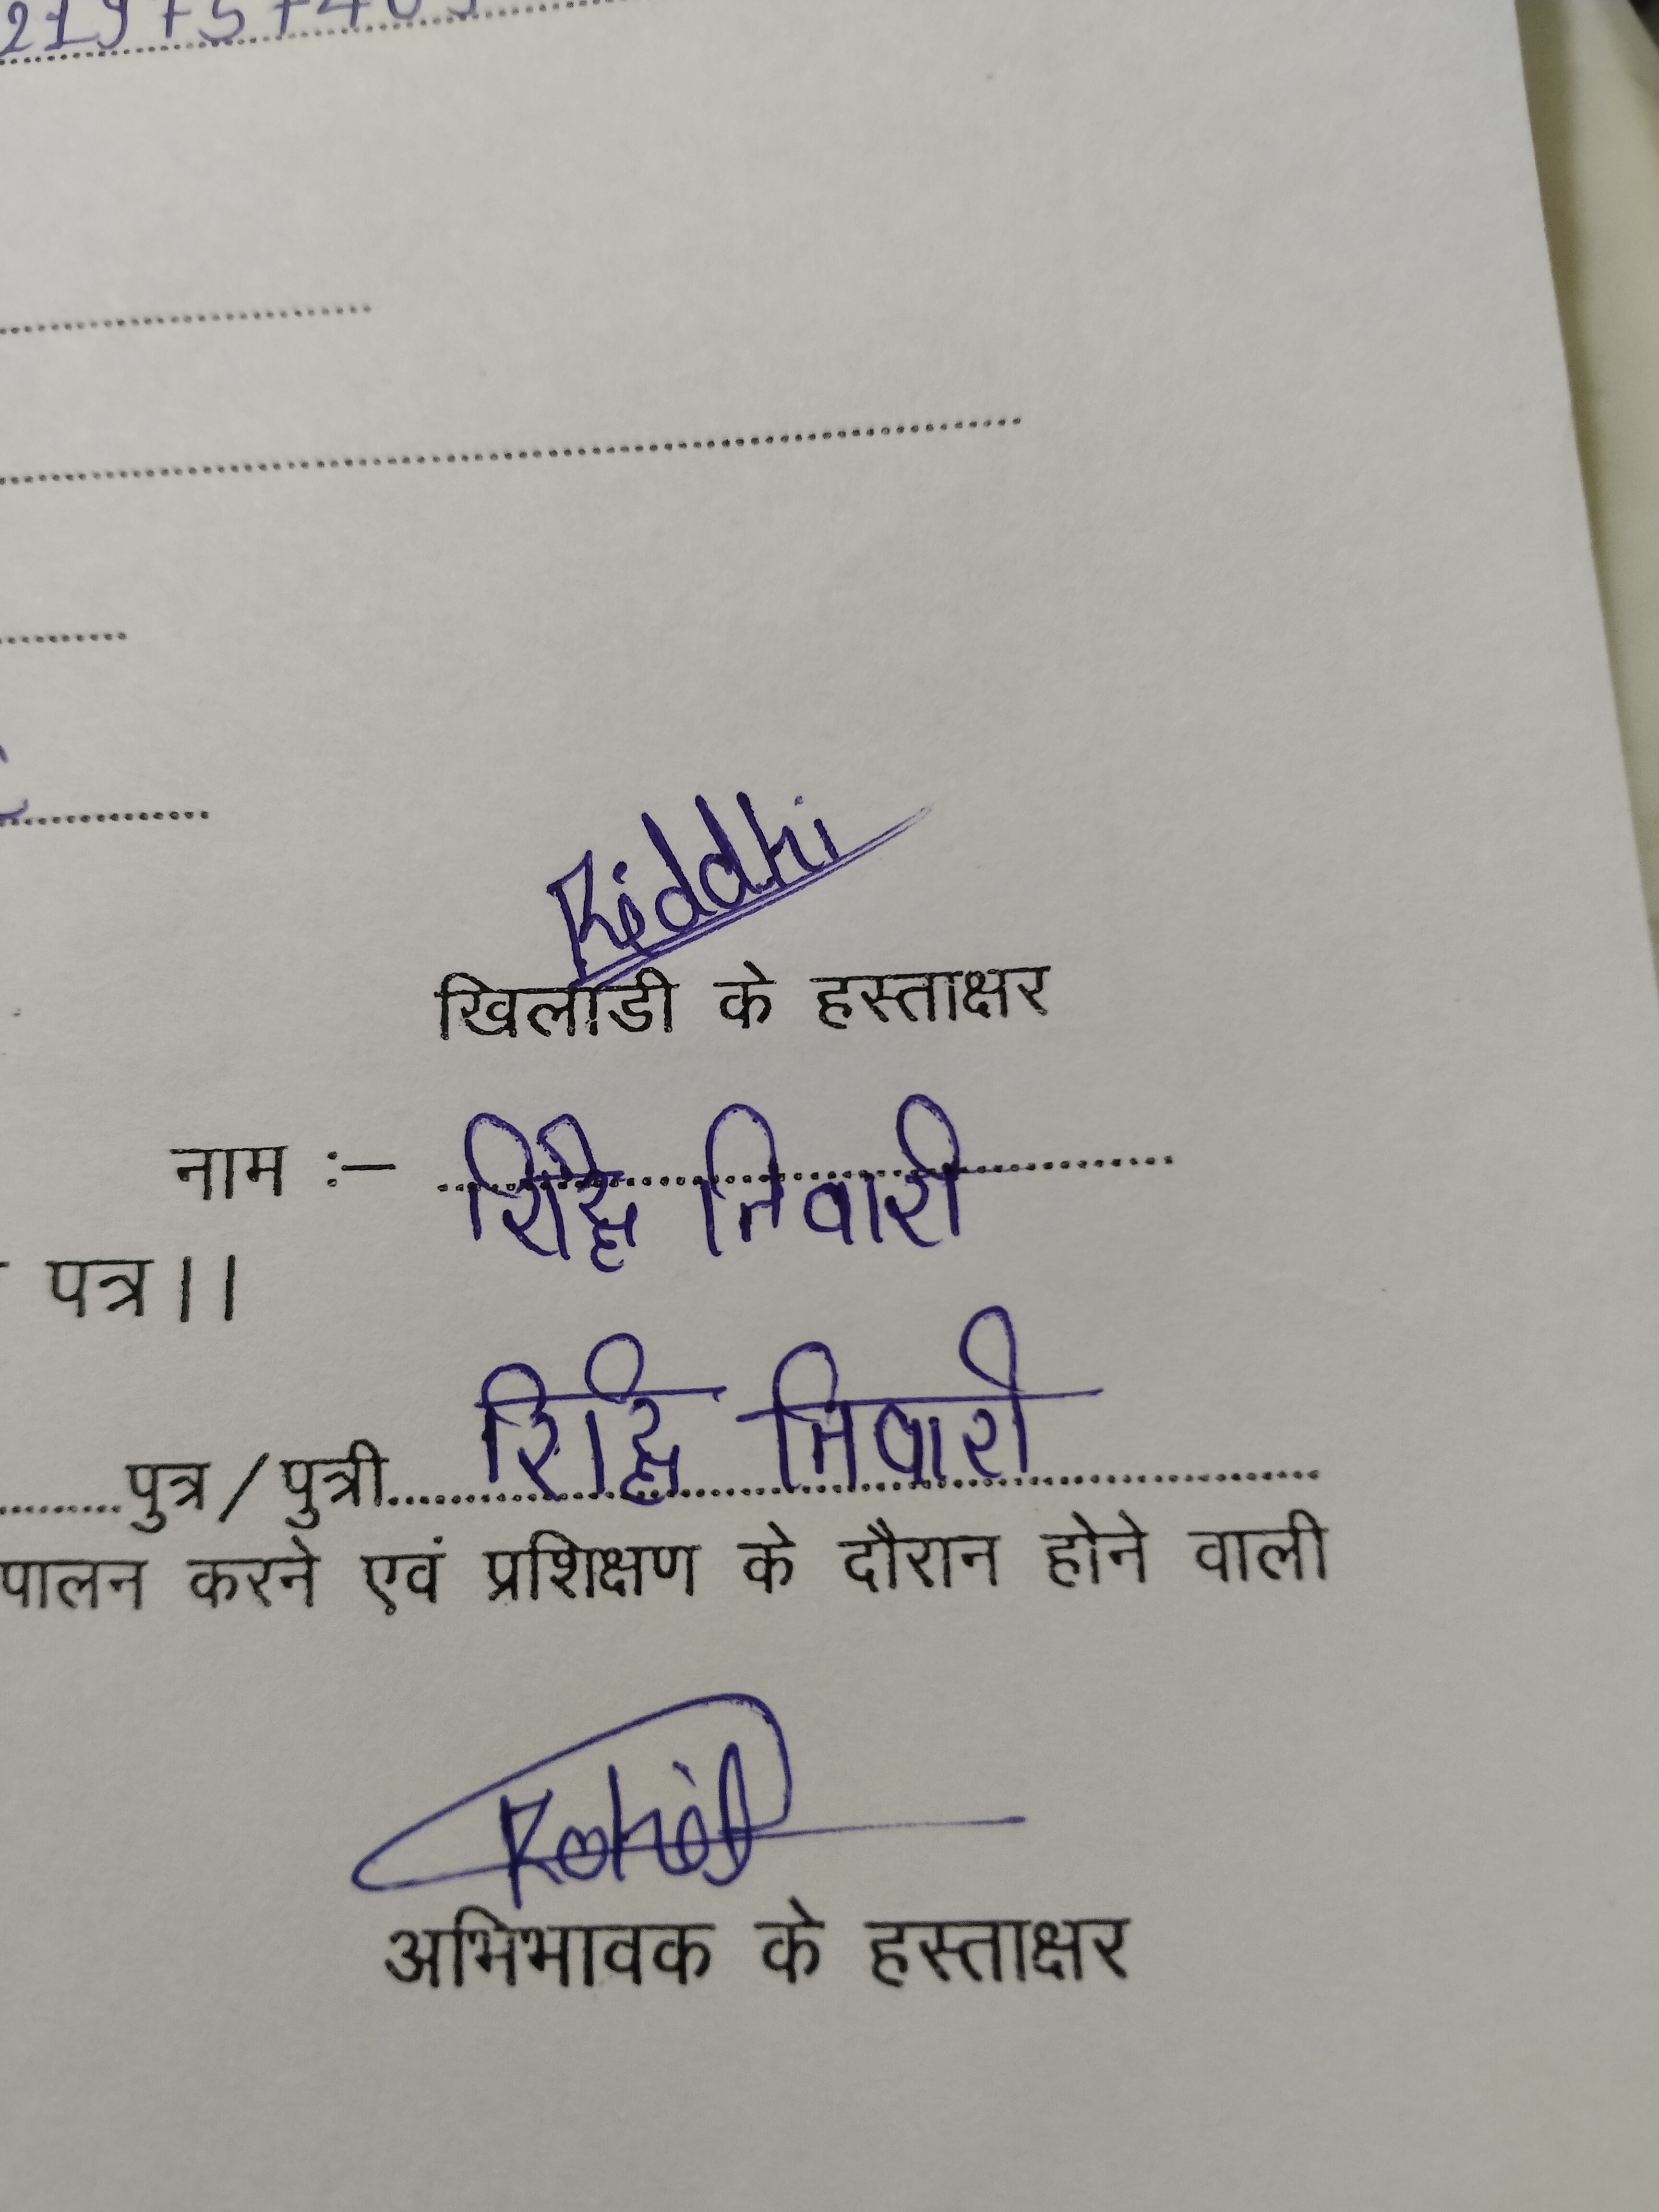 Riddhi
खिलाडी के हस्ताक्षर
नाम :– रिद्धि तिवारी
पत्र।।
पुत्र/पुत्री रिद्धि तिवारी
पालन करने एवं प्रशिक्षण के दौरान होने वाली
Rohit
अभिभावक के हस्ताक्षर